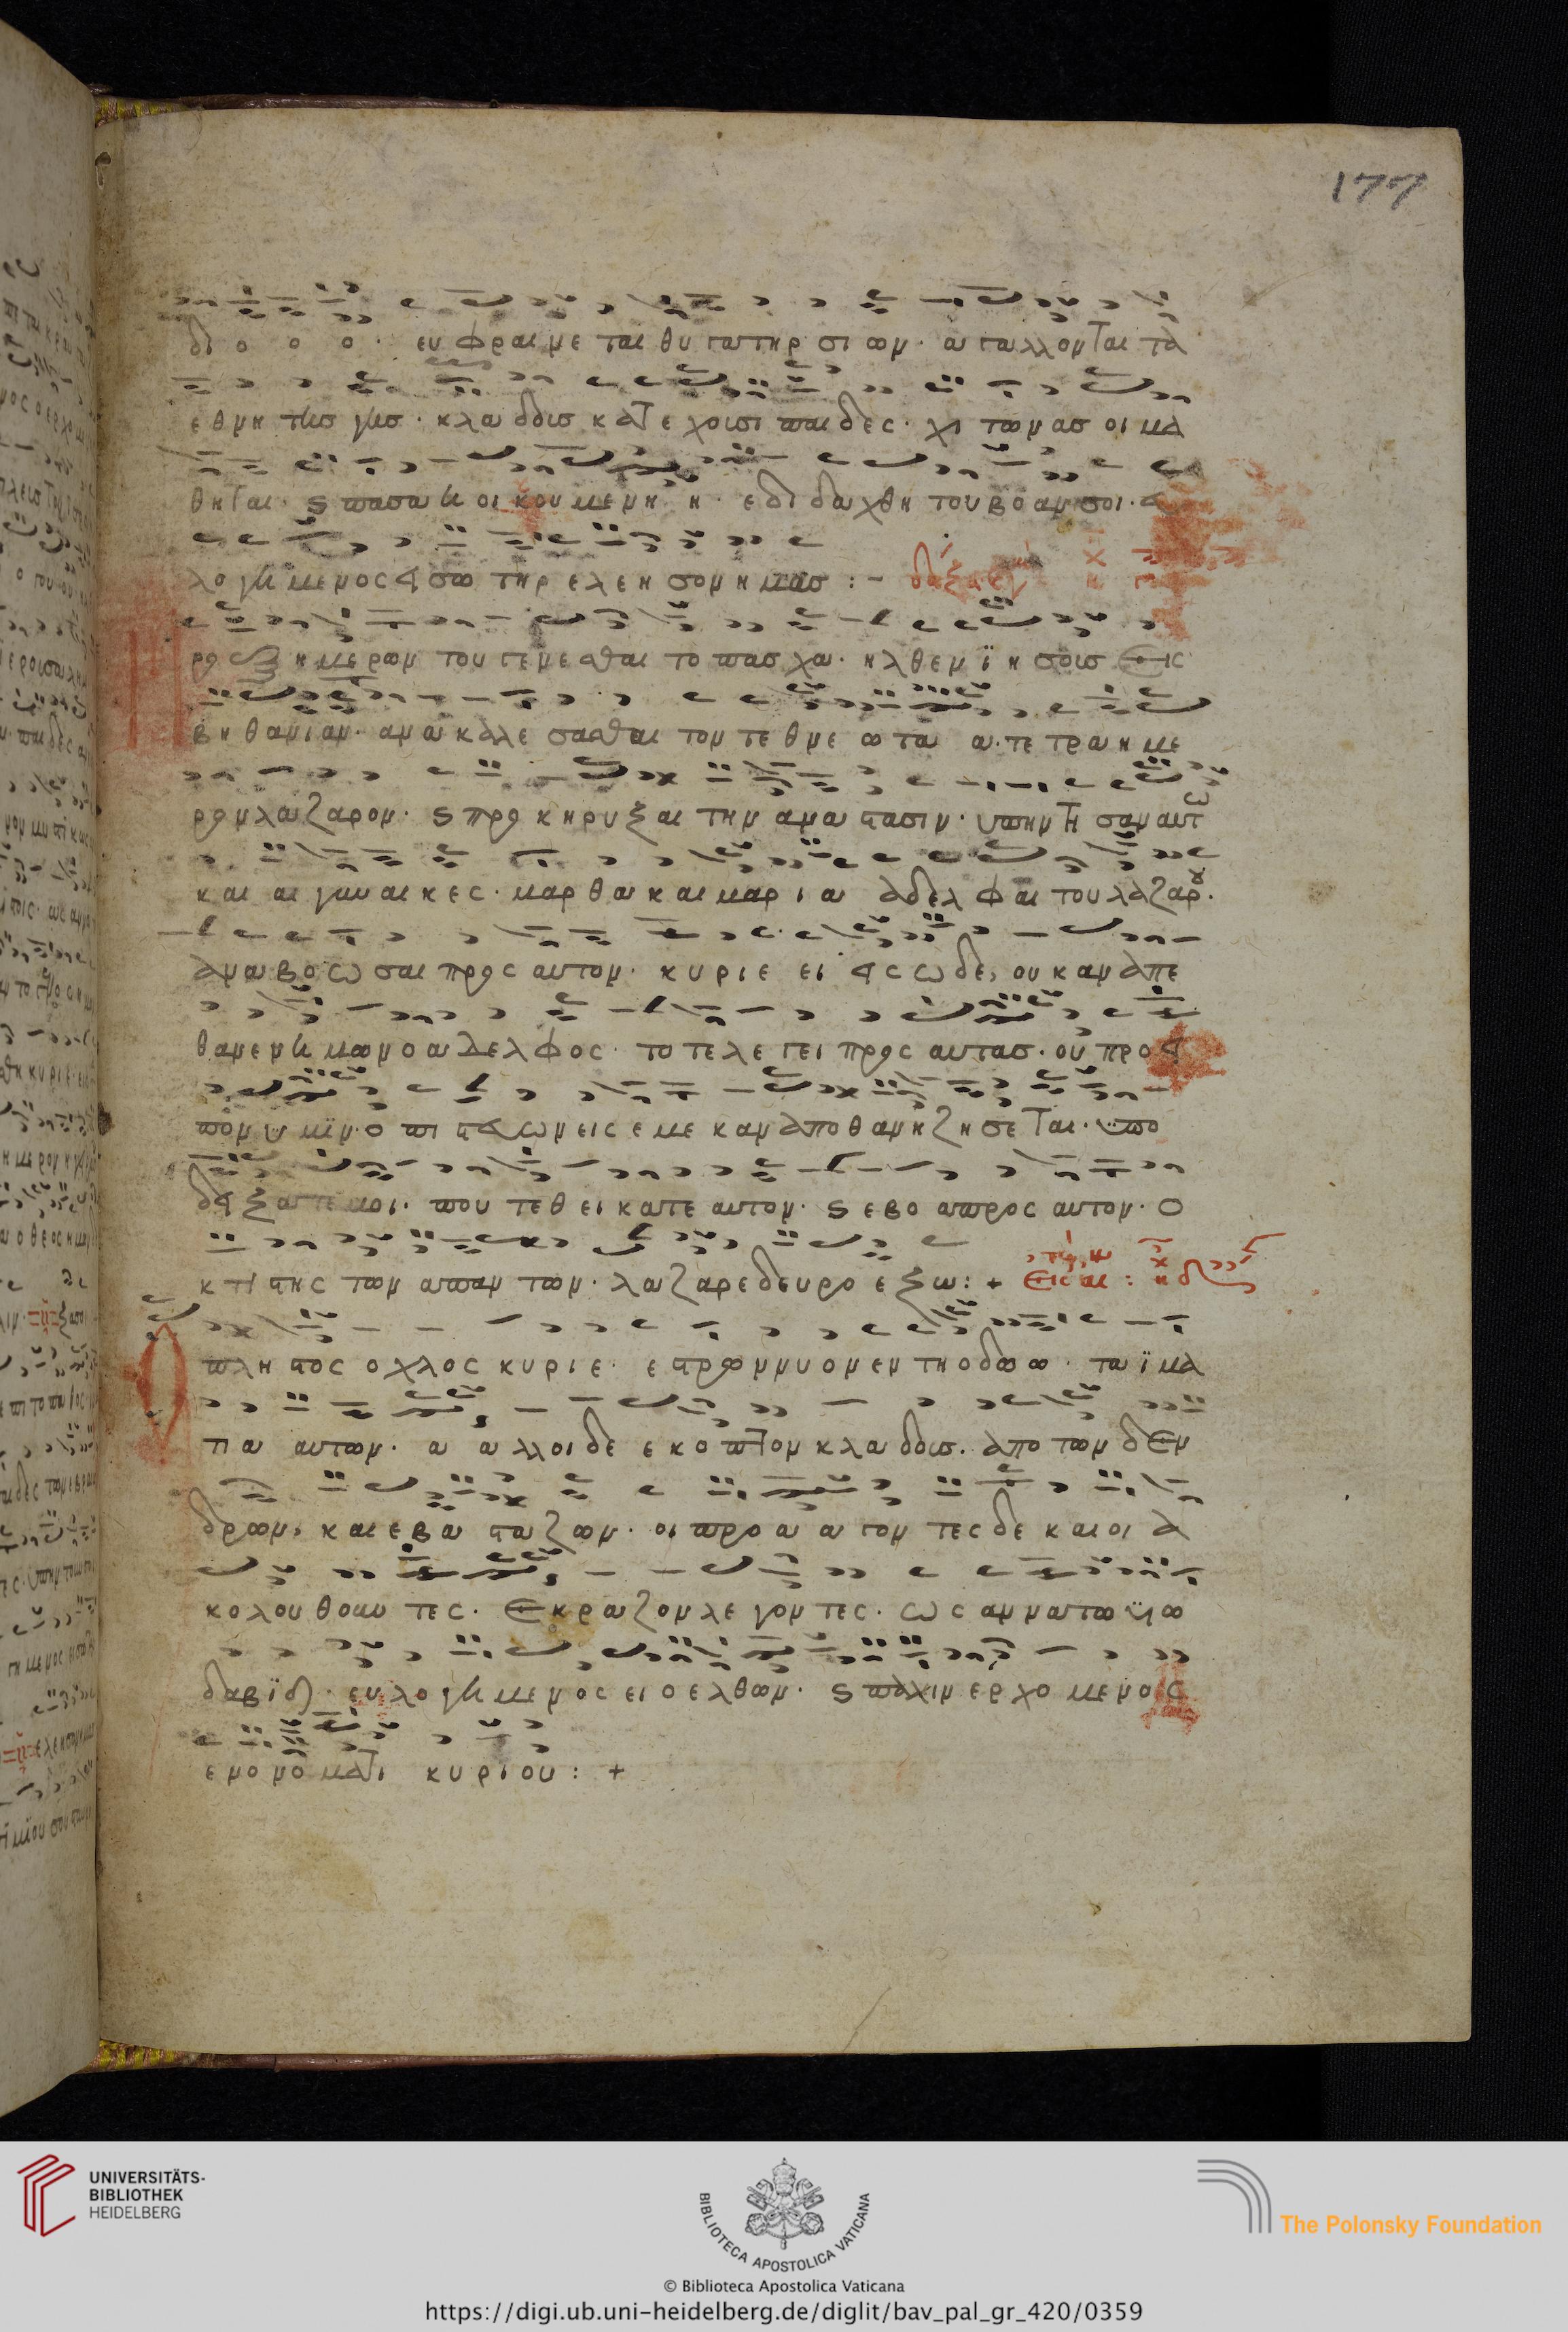 177
διοοο· ευφραινεται θυγατηρ σιων· αγαλλονται τα
εθνη της γης· κλαδους κατεχουσι παιδες· χιτωνας οι μα
θηται· ς πασα η οικουμενη η· εδιδαχθη του βοαν σοι· ευ
λογημενος ει σωτηρ ελεησον ημας :–
ρο εξ ημερων του γενεσθαι το πασχα· ηλθεν ϊησους εις
βηθανιαν· ανακαλεσασθαι τον τεθνεωτα α· τετραημε
ρον λαζαρον· ς προκηρυξαι την αναστασιν· υπηντησαν αυτω
και αι γυναικες· μαρθα και μαρια αδελφαι του λαζαρου·
αναβοωσαι προς αυτον· κυριε ει εις ωδε, ουκ αν απε
θανεν ημων ο αδελφος· το τε λεγει προς αυτας· ου προει
πον υμιν· ο πιστευων εις εμε καν αποθανη ζησεται· υπο
δειξατε μοι· που τεθεικατε αυτον· ς εβοα προς αυτον· ο
κτιστης των απαντων· λαζαρε δευρο εξω : +
πληστος οχλος κυριε· εστρωννυον εν τη οδωω· τα ϊμα
τια αυτων· αα αλλοι δε εκοπτον κλαδους· απο των δεν
δρων, και εβασταζων· οι προααγοντες δε και οι α
κολουθουντες· εκραζον λεγοντες· ωσαννα τω υϊω
δαβϊδ· ευλογημενος ει ο ελθων· ς παλιν ερχομενος
εν ονοματι κυριου : +
UNIVERSITÄTS-
BIBLIOTHEK
HEIDELBERG
BIBLIOTECA APOSTOLICA VATICANA
The Polonsky Foundation
© Biblioteca Apostolica Vaticana
https://digi.ub.uni-heidelberg.de/diglit/bav_pal_gr_420/0359